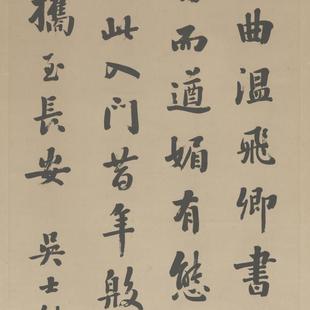 曲温飛卿書
而遒媚有態
此入门昔年
攜至長安 吳士